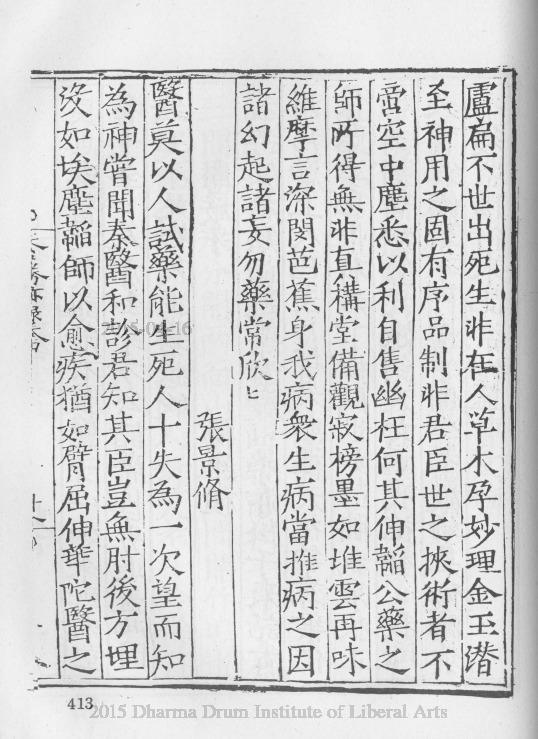 盧扁不世出死生非在人草木孕妙理金玉潛
至神用之固有序品制非君臣世之挾術者不
啻空中塵悉以利自售幽枉何其伸韜公藥之
師所得無非真積堂備觀寂榜墨如堆雲再味
維摩言深閔芭蕉身我病衆生病當推病之因
諸幻起諸妄勿藥常欣欣
張景脩
醫莫以人試藥能生死人十失為一次望而知
為神嘗聞秦醫和彭君知其臣豈無肘後方埋
沒如埃塵韜師以愈疾猶如臂屈伸華陀醫之
413
2015-04-16
2015 Dharma Drum Institute of Liberal Arts